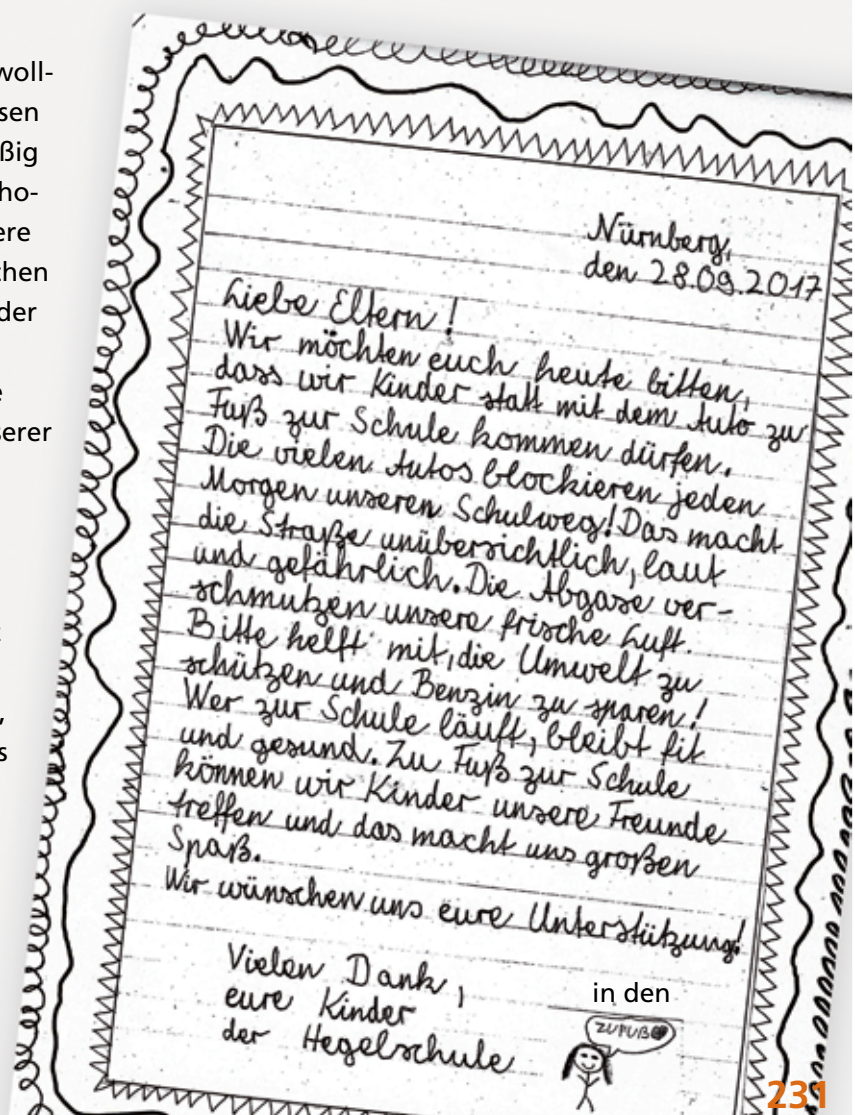 woll-
sen
ßig
ho-
ere
chen
der
e
serer
,
s
Nürnberg,
den 28.09.2017
Liebe Eltern!
Wir möchten euch heute bitten,
dass wir Kinder statt mit dem Auto zu
Fuß zur Schule kommen dürfen.
Die vielen Autos blockieren jeden
Morgen unseren Schulweg! Das macht
die Straße unübersichtlich, laut
und gefährlich. Die Abgase ver-
schmutzen unsere frische Luft.
Bitte helft mit, die Umwelt zu
schützen und Benzin zu sparen!
Wer zur Schule läuft, bleibt fit
und gesund. Zu Fuß zur Schule
können wir Kinder unsere Freunde
treffen und das macht uns großen
Spaß.
Wir wünschen uns eure Unterstützung!
Vielen Dank,
eure Kinder
der Hegelschule
in den
ZUFUß
231